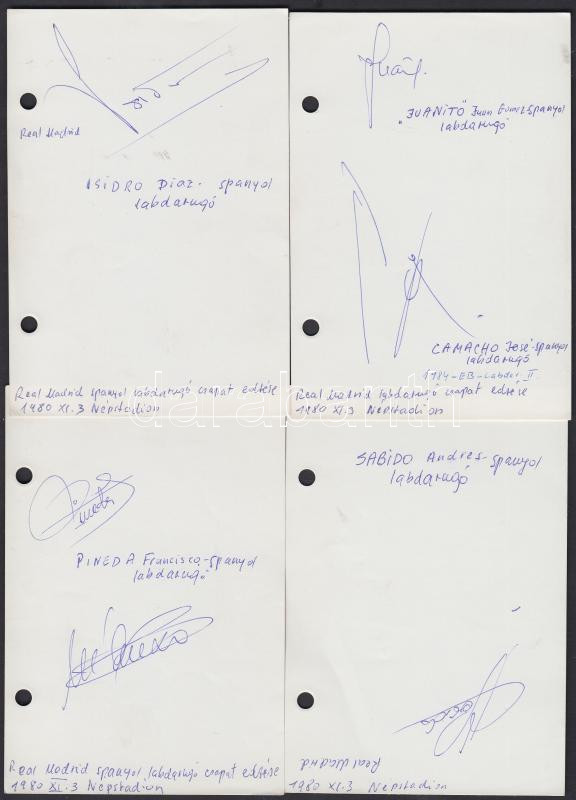 Real Madrid
ISIDRO Diaz - spanyol
labdarugó
Real Madrid spanyol labdarugó csapat edzése
1980 XI.3 Népstadion
"JUANITO" Juan Gomez spanyol
labdarugó
CAMACHO José - spanyol
labdarugó
1984-EB-Labdar. II.
Real Madrid labdarugó csapat edzése
1980 XI.3 Népstadion
darabanth
Pineda
PINEDA Francisco - spanyol
labdarugó
Real Madrid spanyol labdarugó csapat edzése
1980 XI.3 Népstadion
SABIDO Andres - spanyol
labdarugó
Real Madrid
1980 XI.3 Népstadion